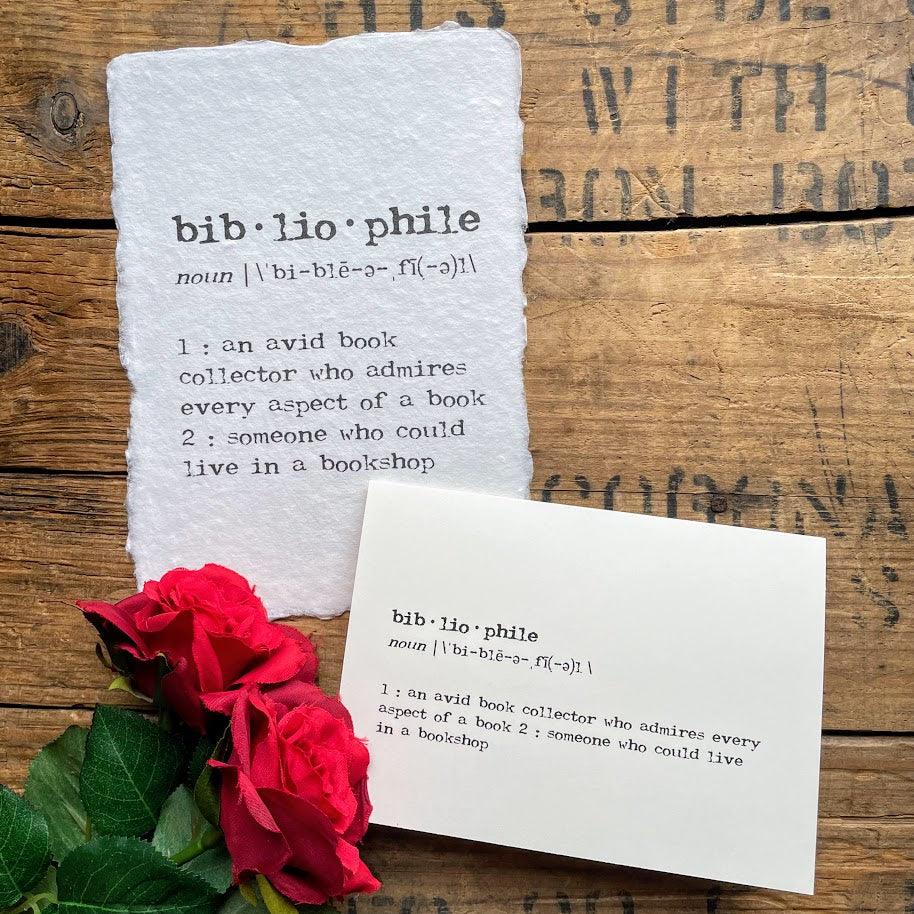 WITH
bib·lio·phile
noun |\ˈbi-blē-ə-ˌfī(-ə)l\
1 : an avid book
collector who admires
every aspect of a book
2 : someone who could
live in a bookshop
bib·lio·phile
noun |\ˈbi-blē-ə-ˌfī(-ə)l\
1 : an avid book collector who admires every
aspect of a book 2 : someone who could live
in a bookshop